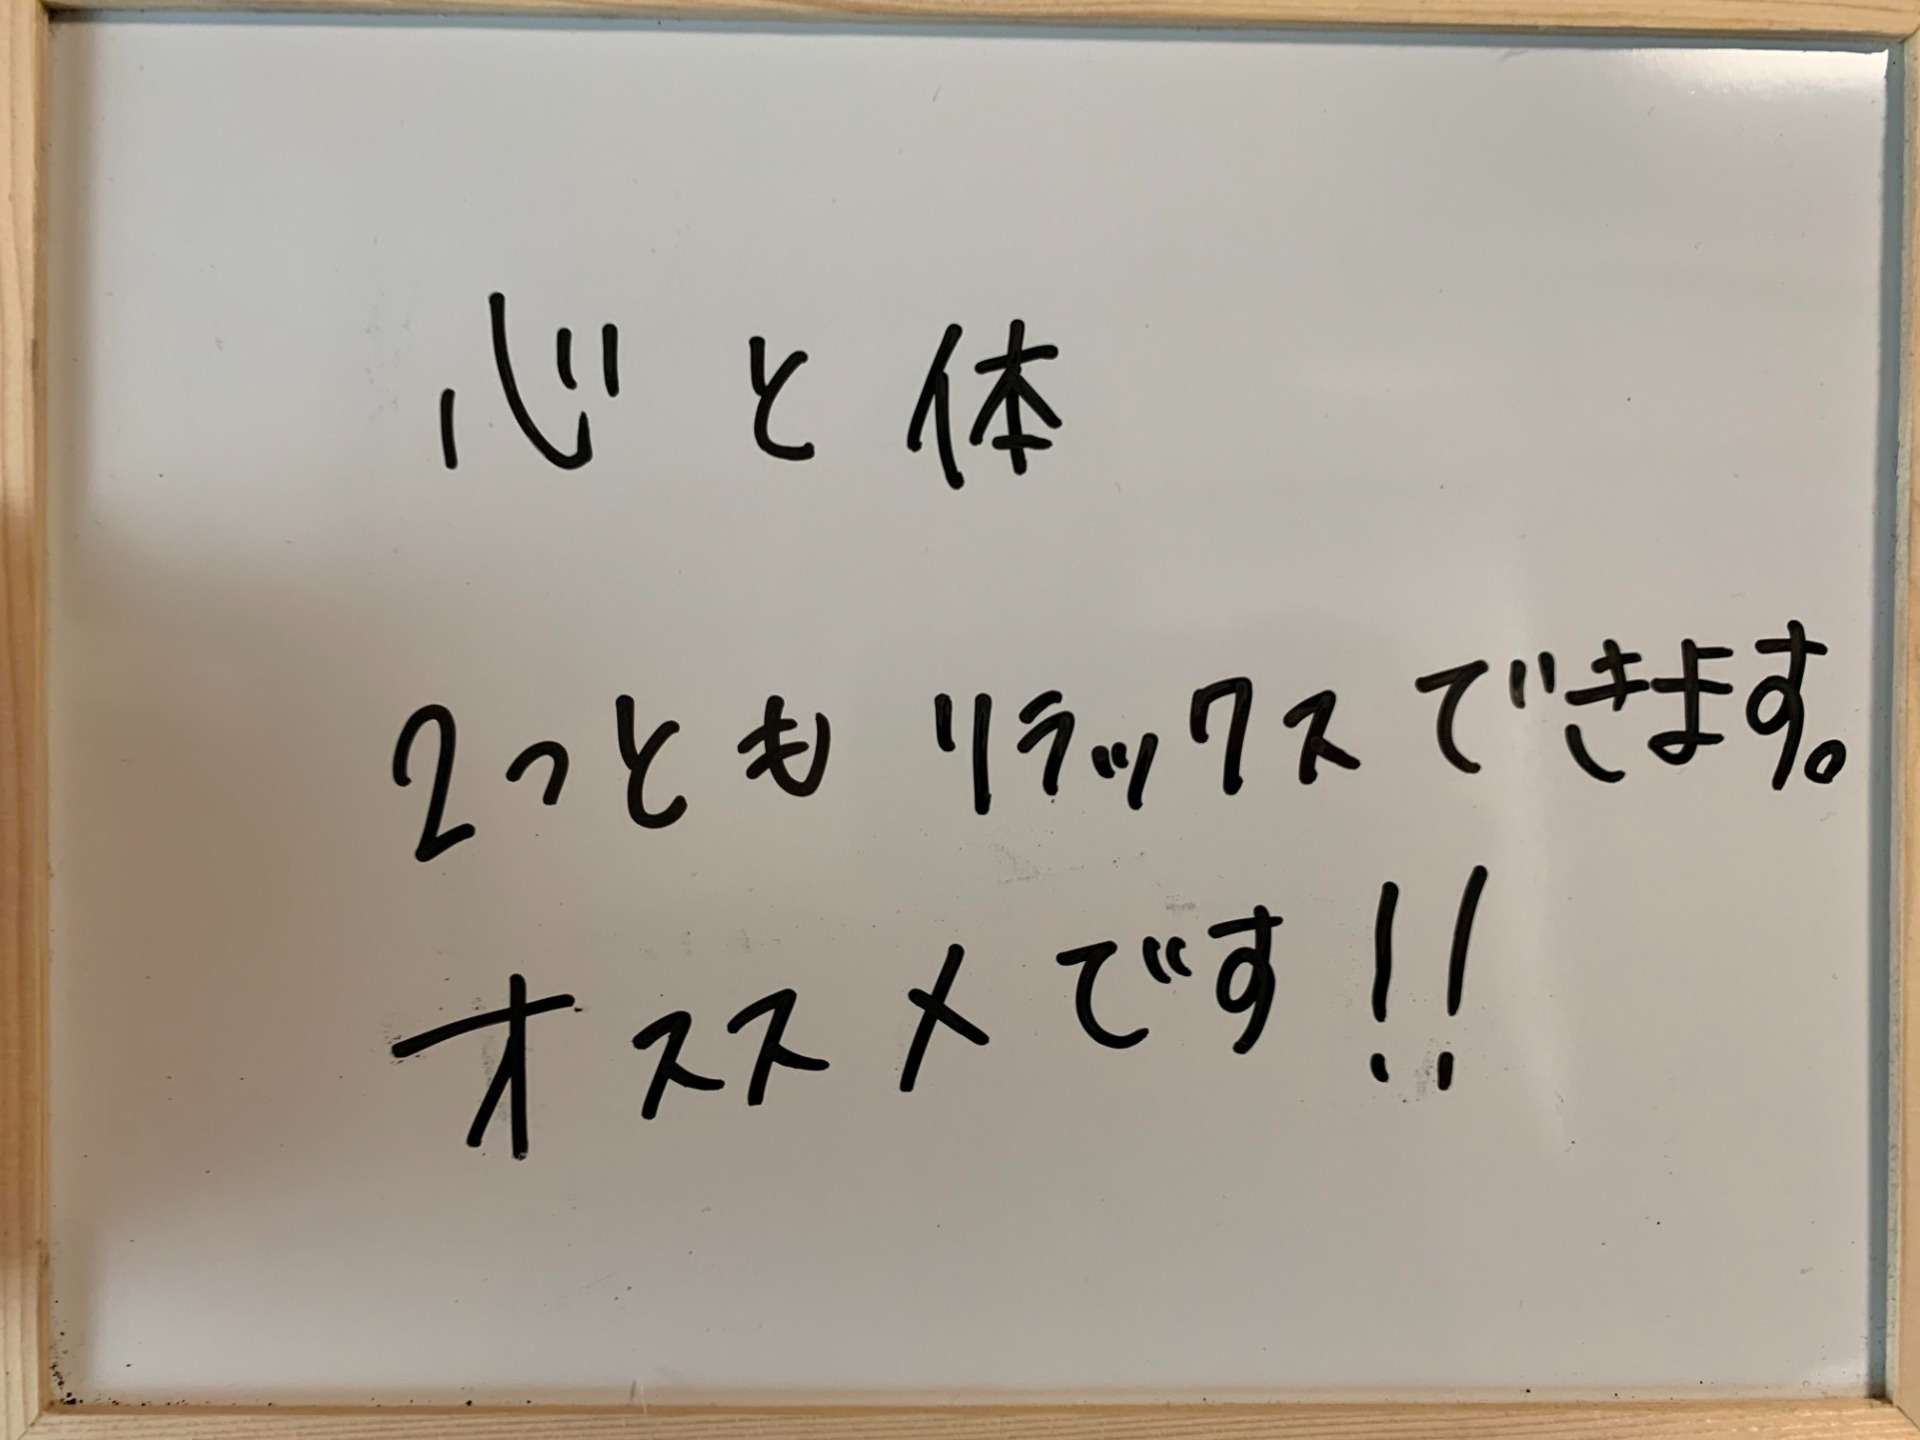 心と体
2つともリラックスできます。
オススメです!!